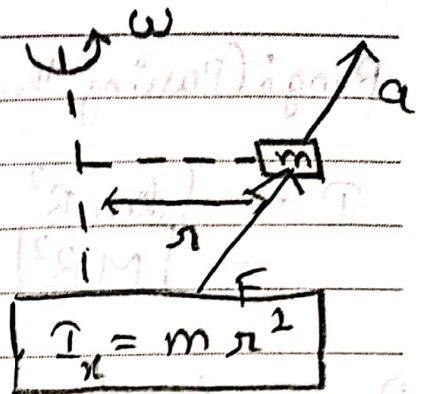 ω
a
m
r
F
I_x = m r²